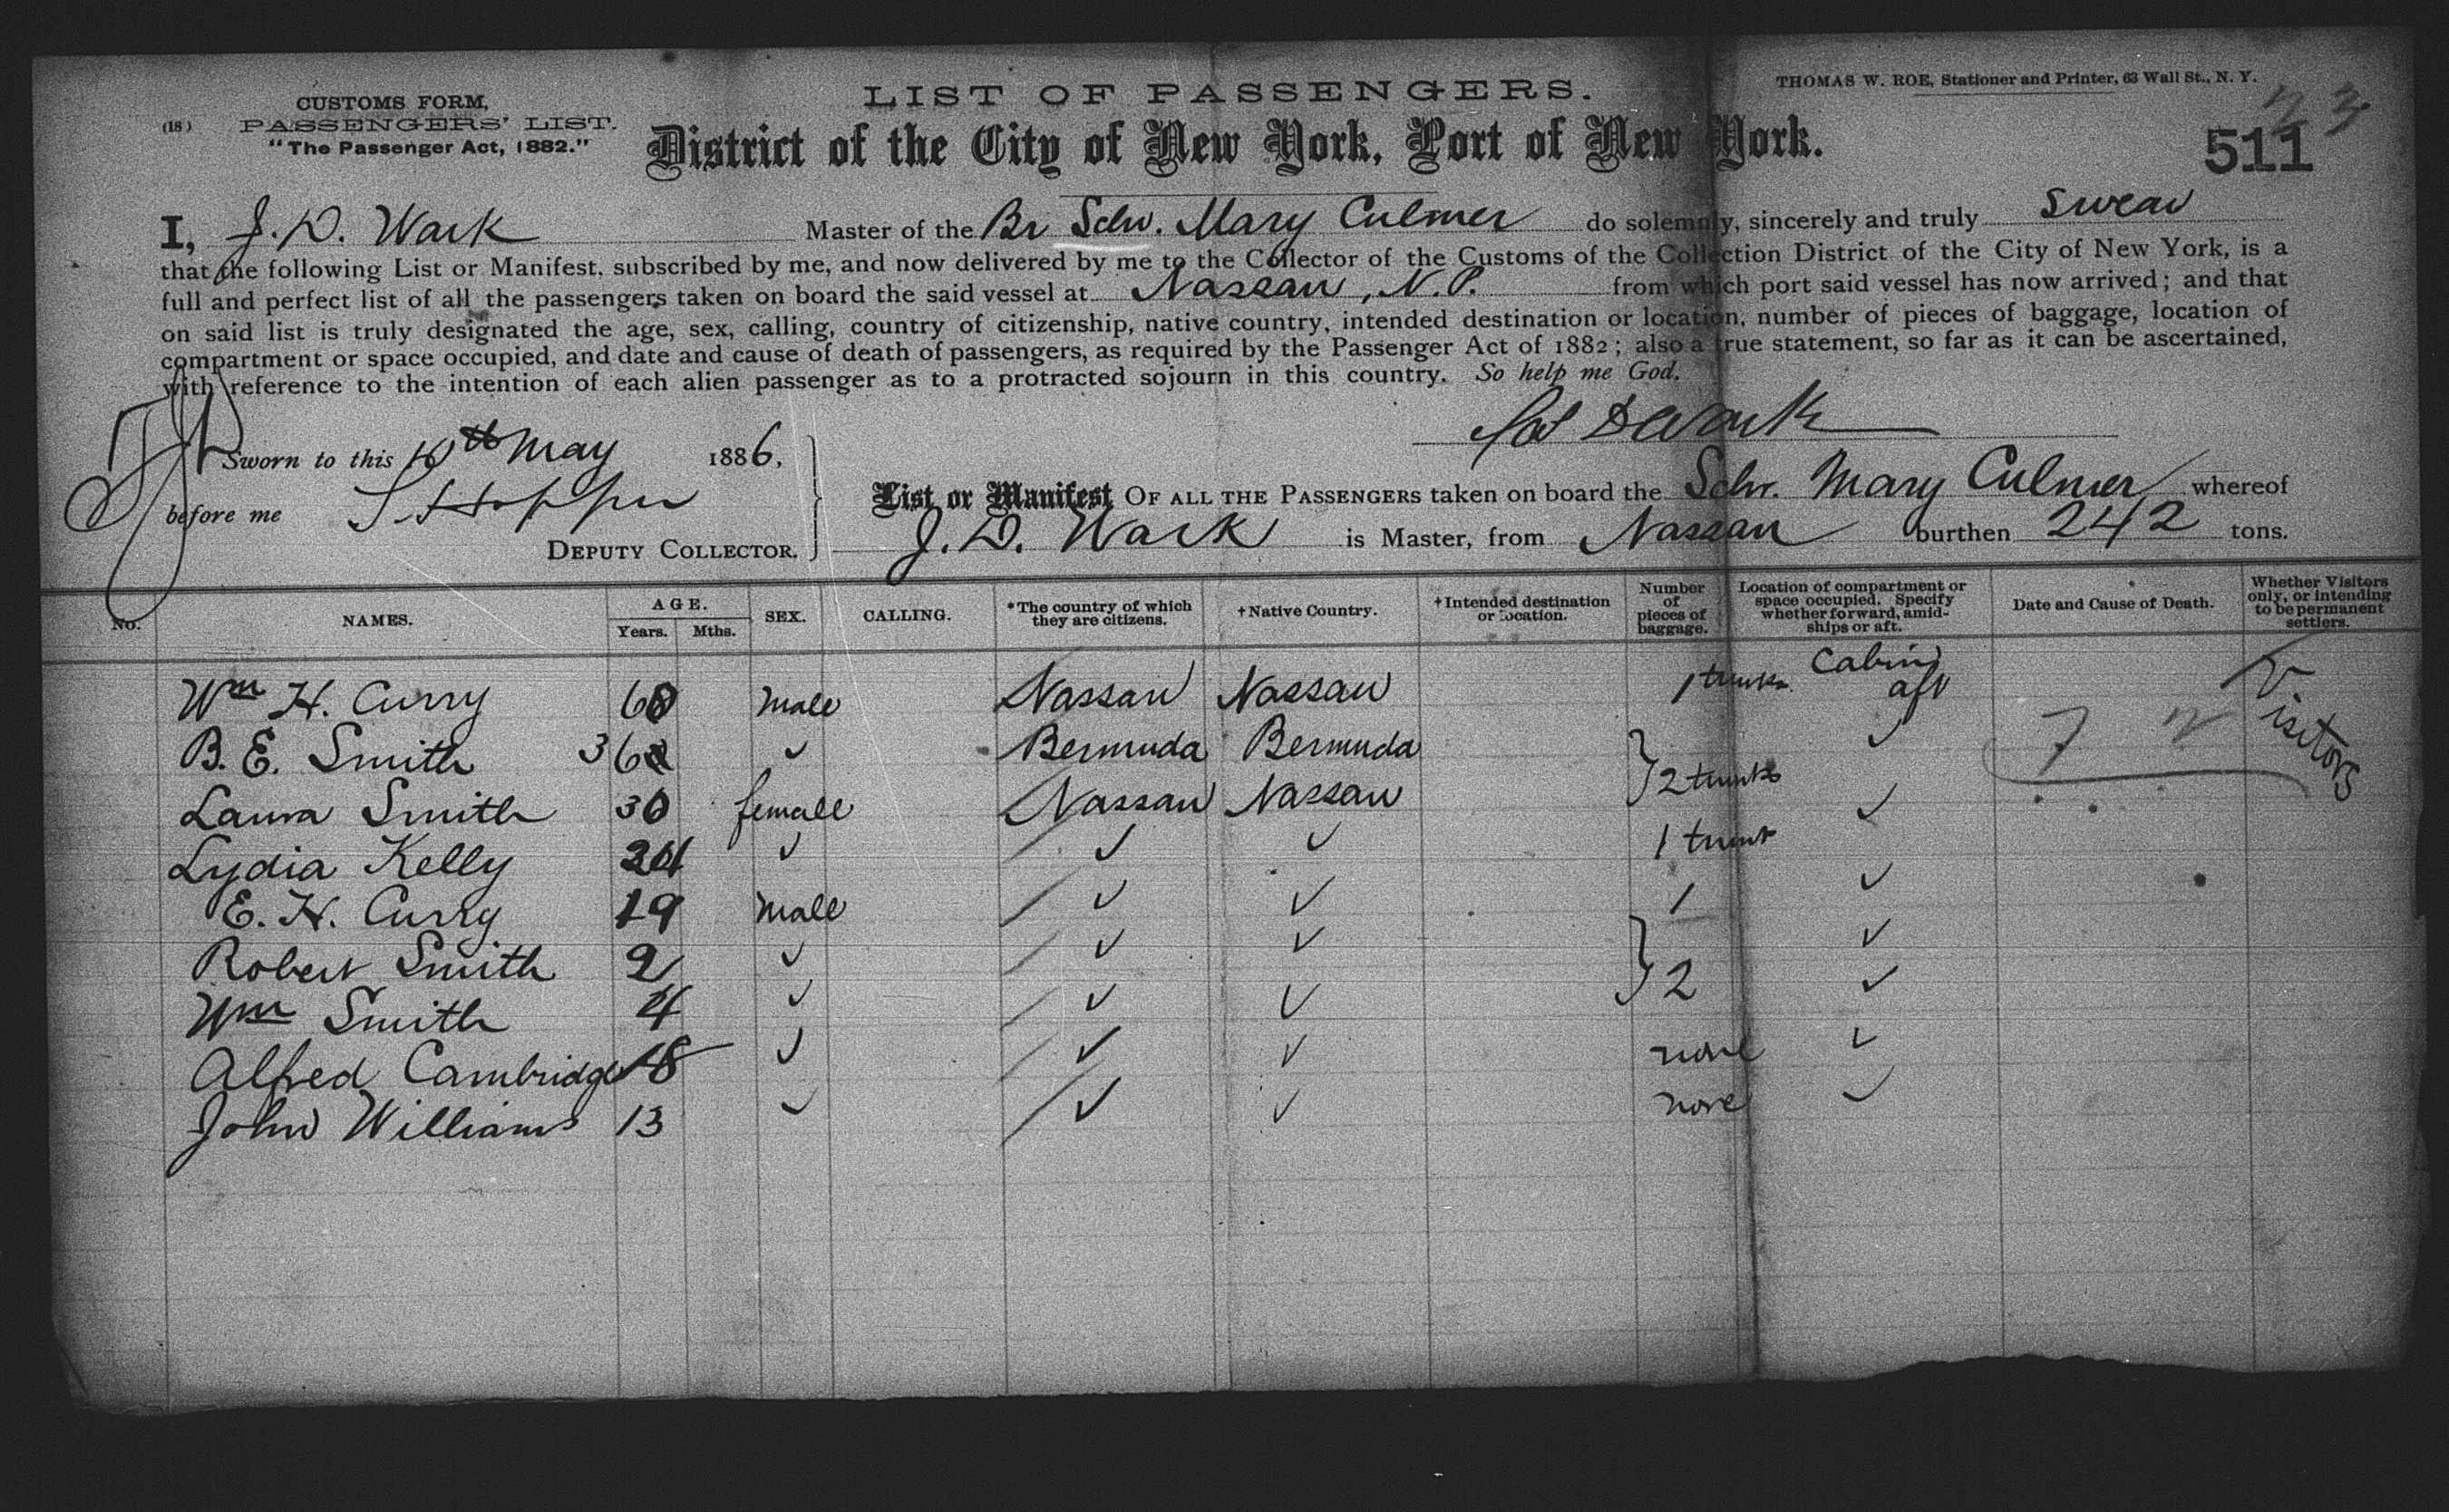 CUSTOMS FORM,
(18) PASSENGERS' LIST.
"The Passenger Act, 1882."
LIST OF PASSENGERS.
District of the City of New York, Port of New York.
THOMAS W. ROE, Stationer and Printer, 63 Wall St., N. Y.
23
511
I, J. D. Wark Master of the Br Schr. Mary Culmer do solemnly, sincerely and truly swear
that the following List or Manifest, subscribed by me, and now delivered by me to the Collector of the Customs of the Collection District of the City of New York, is a
full and perfect list of all the passengers taken on board the said vessel at Nassau, N.P. from which port said vessel has now arrived; and that
on said list is truly designated the age, sex, calling, country of citizenship, native country, intended destination or location, number of pieces of baggage, location of
compartment or space occupied, and date and cause of death of passengers, as required by the Passenger Act of 1882; also a true statement, so far as it can be ascertained,
with reference to the intention of each alien passenger as to a protracted sojourn in this country. So help me God.
D Wark
Sworn to this 10th May 1886,
before me
DEPUTY COLLECTOR.
List or Manifest OF ALL THE PASSENGERS taken on board the Schr. Mary Culmer whereof
J. D. Wark is Master, from Nassau burthen 242 tons.
No. NAMES. AGE. Years. Mths. SEX. CALLING. *The country of which they are citizens. †Native Country. †Intended destination or location. Number of pieces of baggage. Location of compartment or space occupied. Specify whether forward, amidships or aft. Date and Cause of Death. Whether Visitors only, or intending to be permanent settlers.
Wm H. Curry 60 male Nassau Nassau 1 trunk Cabin aft Visitors
B. E. Smith 36 ✓ Bermuda Bermuda } 2 trunks ✓
Laura Smith 30 female Nassau Nassau ✓
Lydia Kelly 24 ✓ ✓ ✓ 1 trunk ✓
E. H. Curry 19 male ✓ ✓ 1 ✓
Robert Smith 2 ✓ ✓ ✓ } 2 ✓
Wm Smith 4 ✓ ✓ ✓ ✓
Alfred Cambridge 18 ✓ ✓ ✓ none ✓
John Williams 13 ✓ ✓ ✓ none ✓